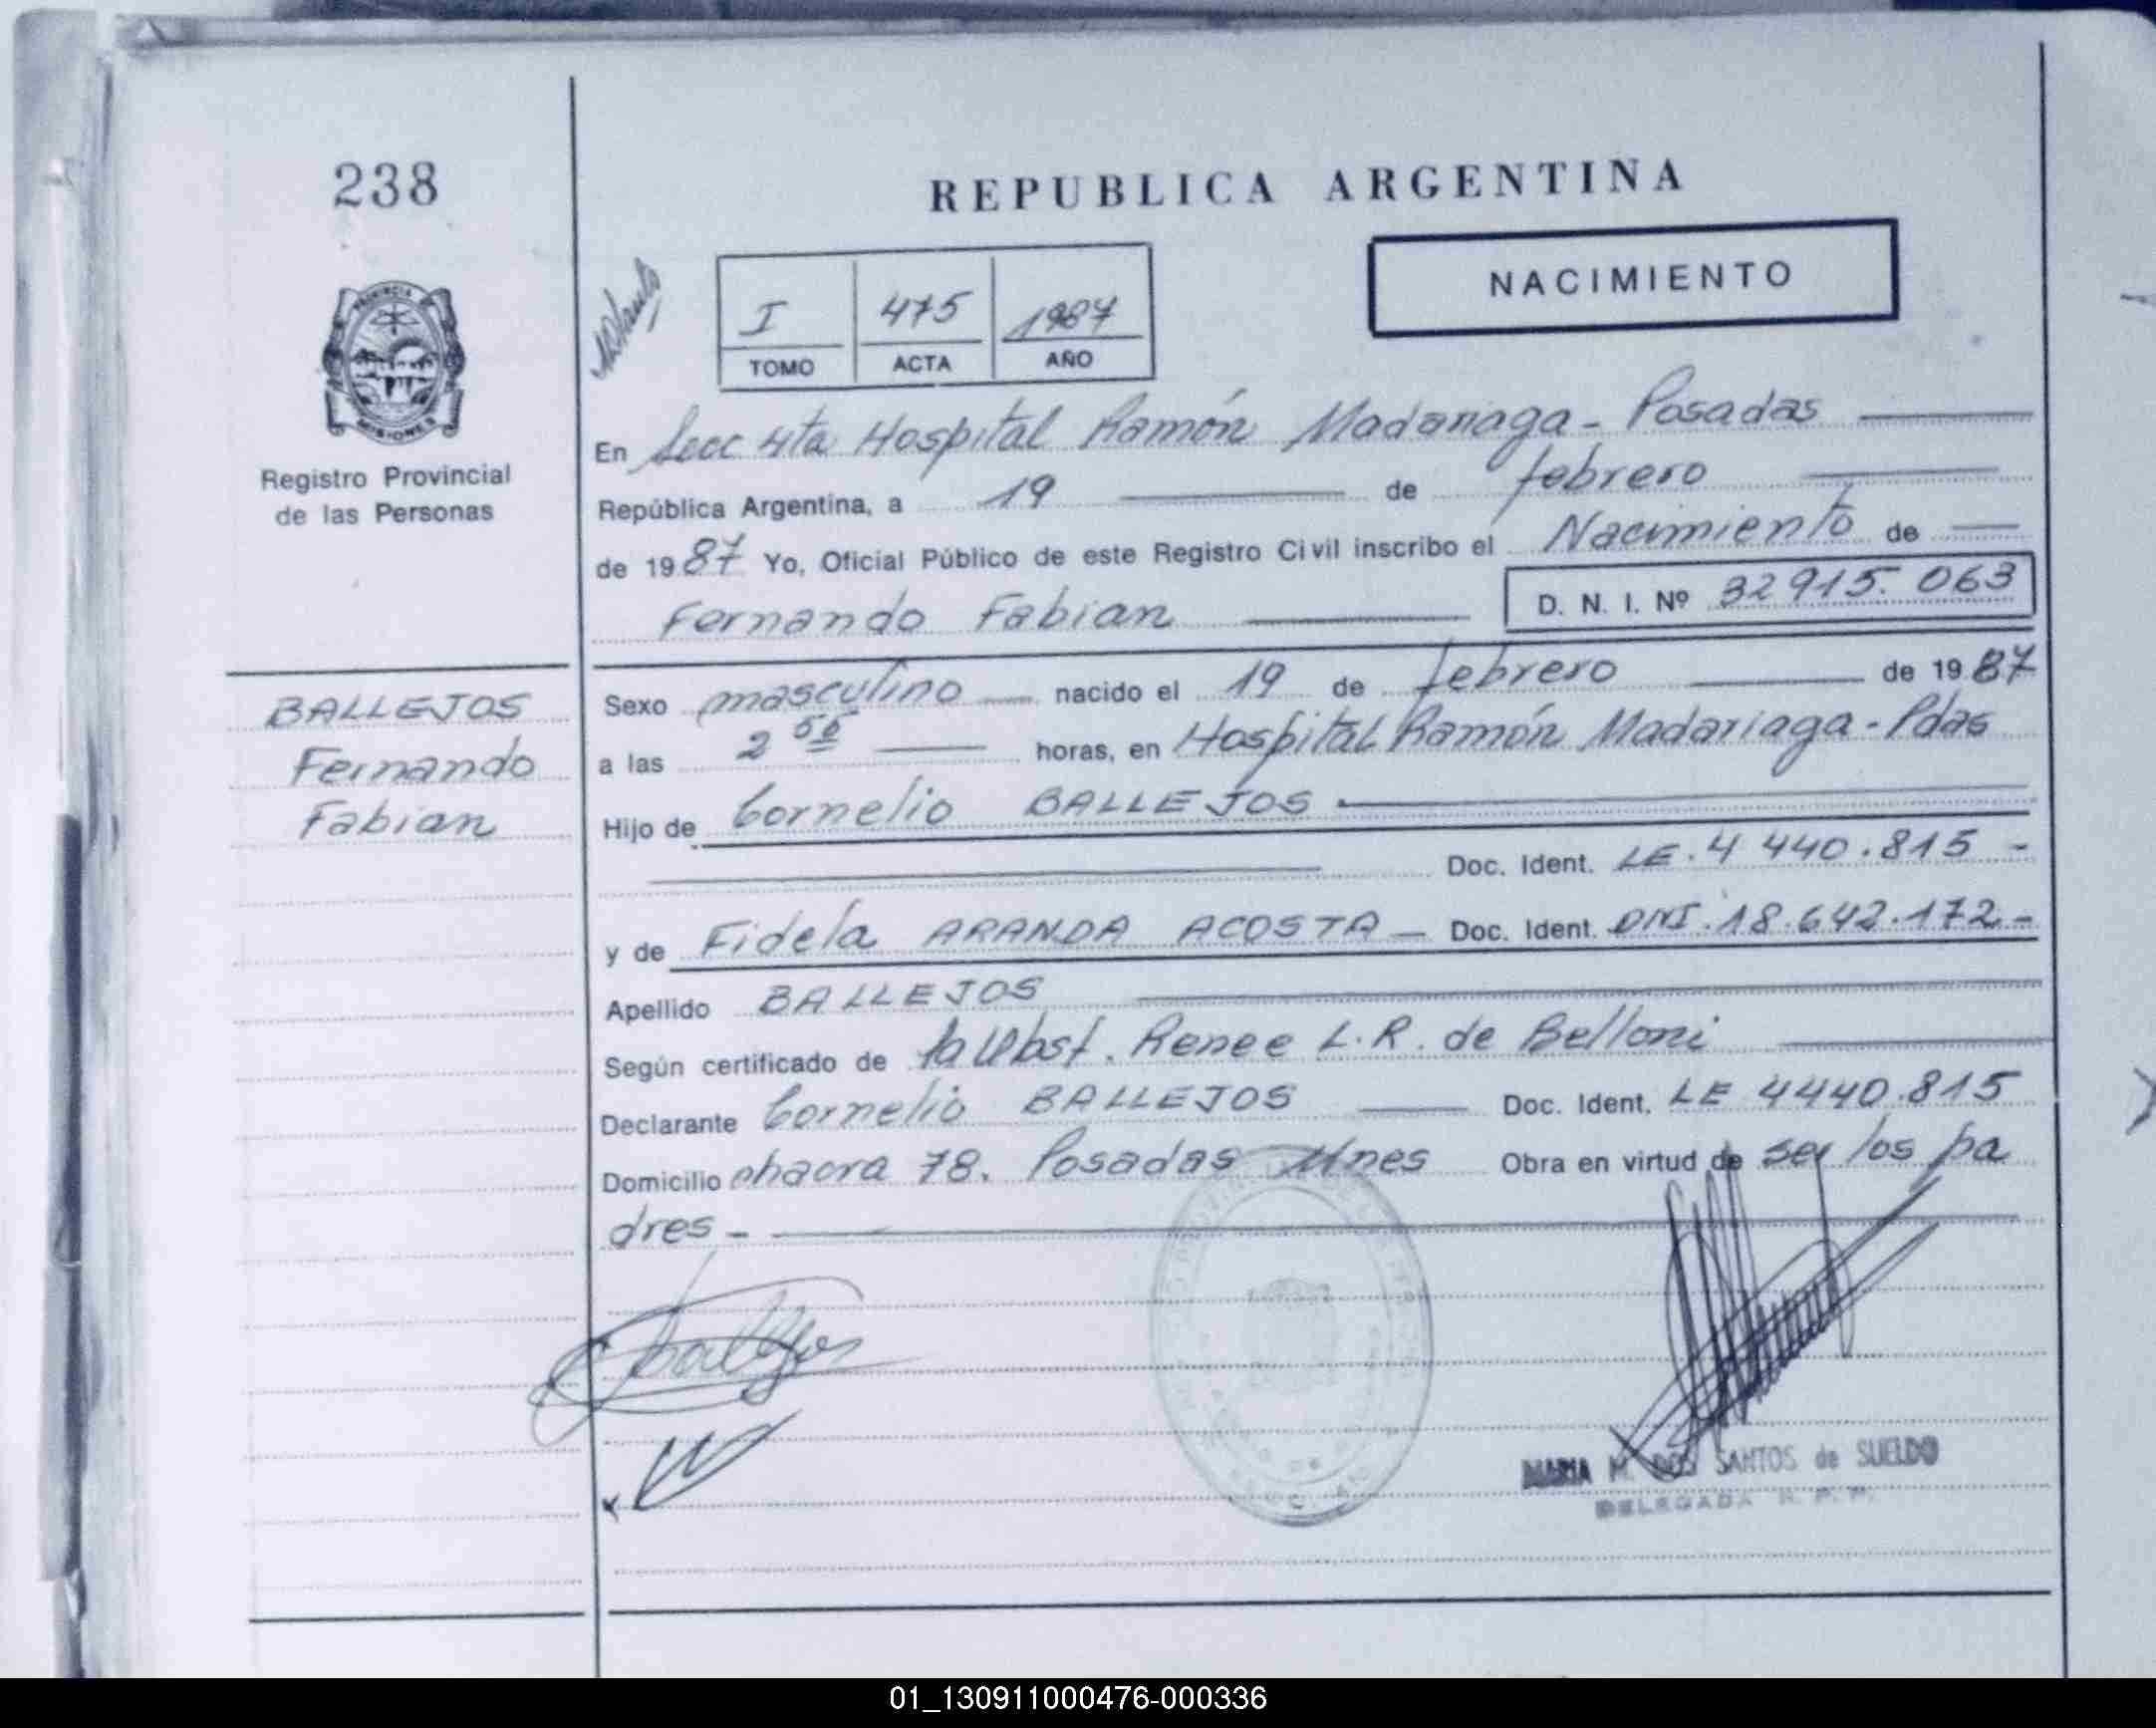 238
REPUBLICA ARGENTINA
NACIMIENTO
I 475 1987
TOMO ACTA AÑO
PROVINCIA
MISIONES
Registro Provincial
de las Personas
En Secc 4ta Hospital Ramón Madariaga - Posadas
República Argentina, a 19 de febrero
de 1987 Yo, Oficial Público de este Registro Civil inscribo el Nacimiento de
Fernando Fabian D. N. I. Nº 32915.063
BALLEJOS
Fernando
Fabian
Sexo masculino nacido el 19 de febrero de 1987
a las 2 horas, en Hospital Ramón Madariaga - Pdas
Hijo de Cornelio BALLEJOS
Doc. Ident. LE. 4 440.815 -
y de Fidela ARANDA ACOSTA - Doc. Ident. DNI.18.642.172-
Apellido BALLEJOS
Según certificado de la Obst. Renee L.R. de Belloni
Declarante Cornelio BALLEJOS Doc. Ident. LE 4440.815
Domicilio chacra 78. Posadas Mnes Obra en virtud de ser los pa
dres -
MARIA M. DOS SANTOS de SUELDO
DELEGADA R. P. P.
01_130911000476-000336